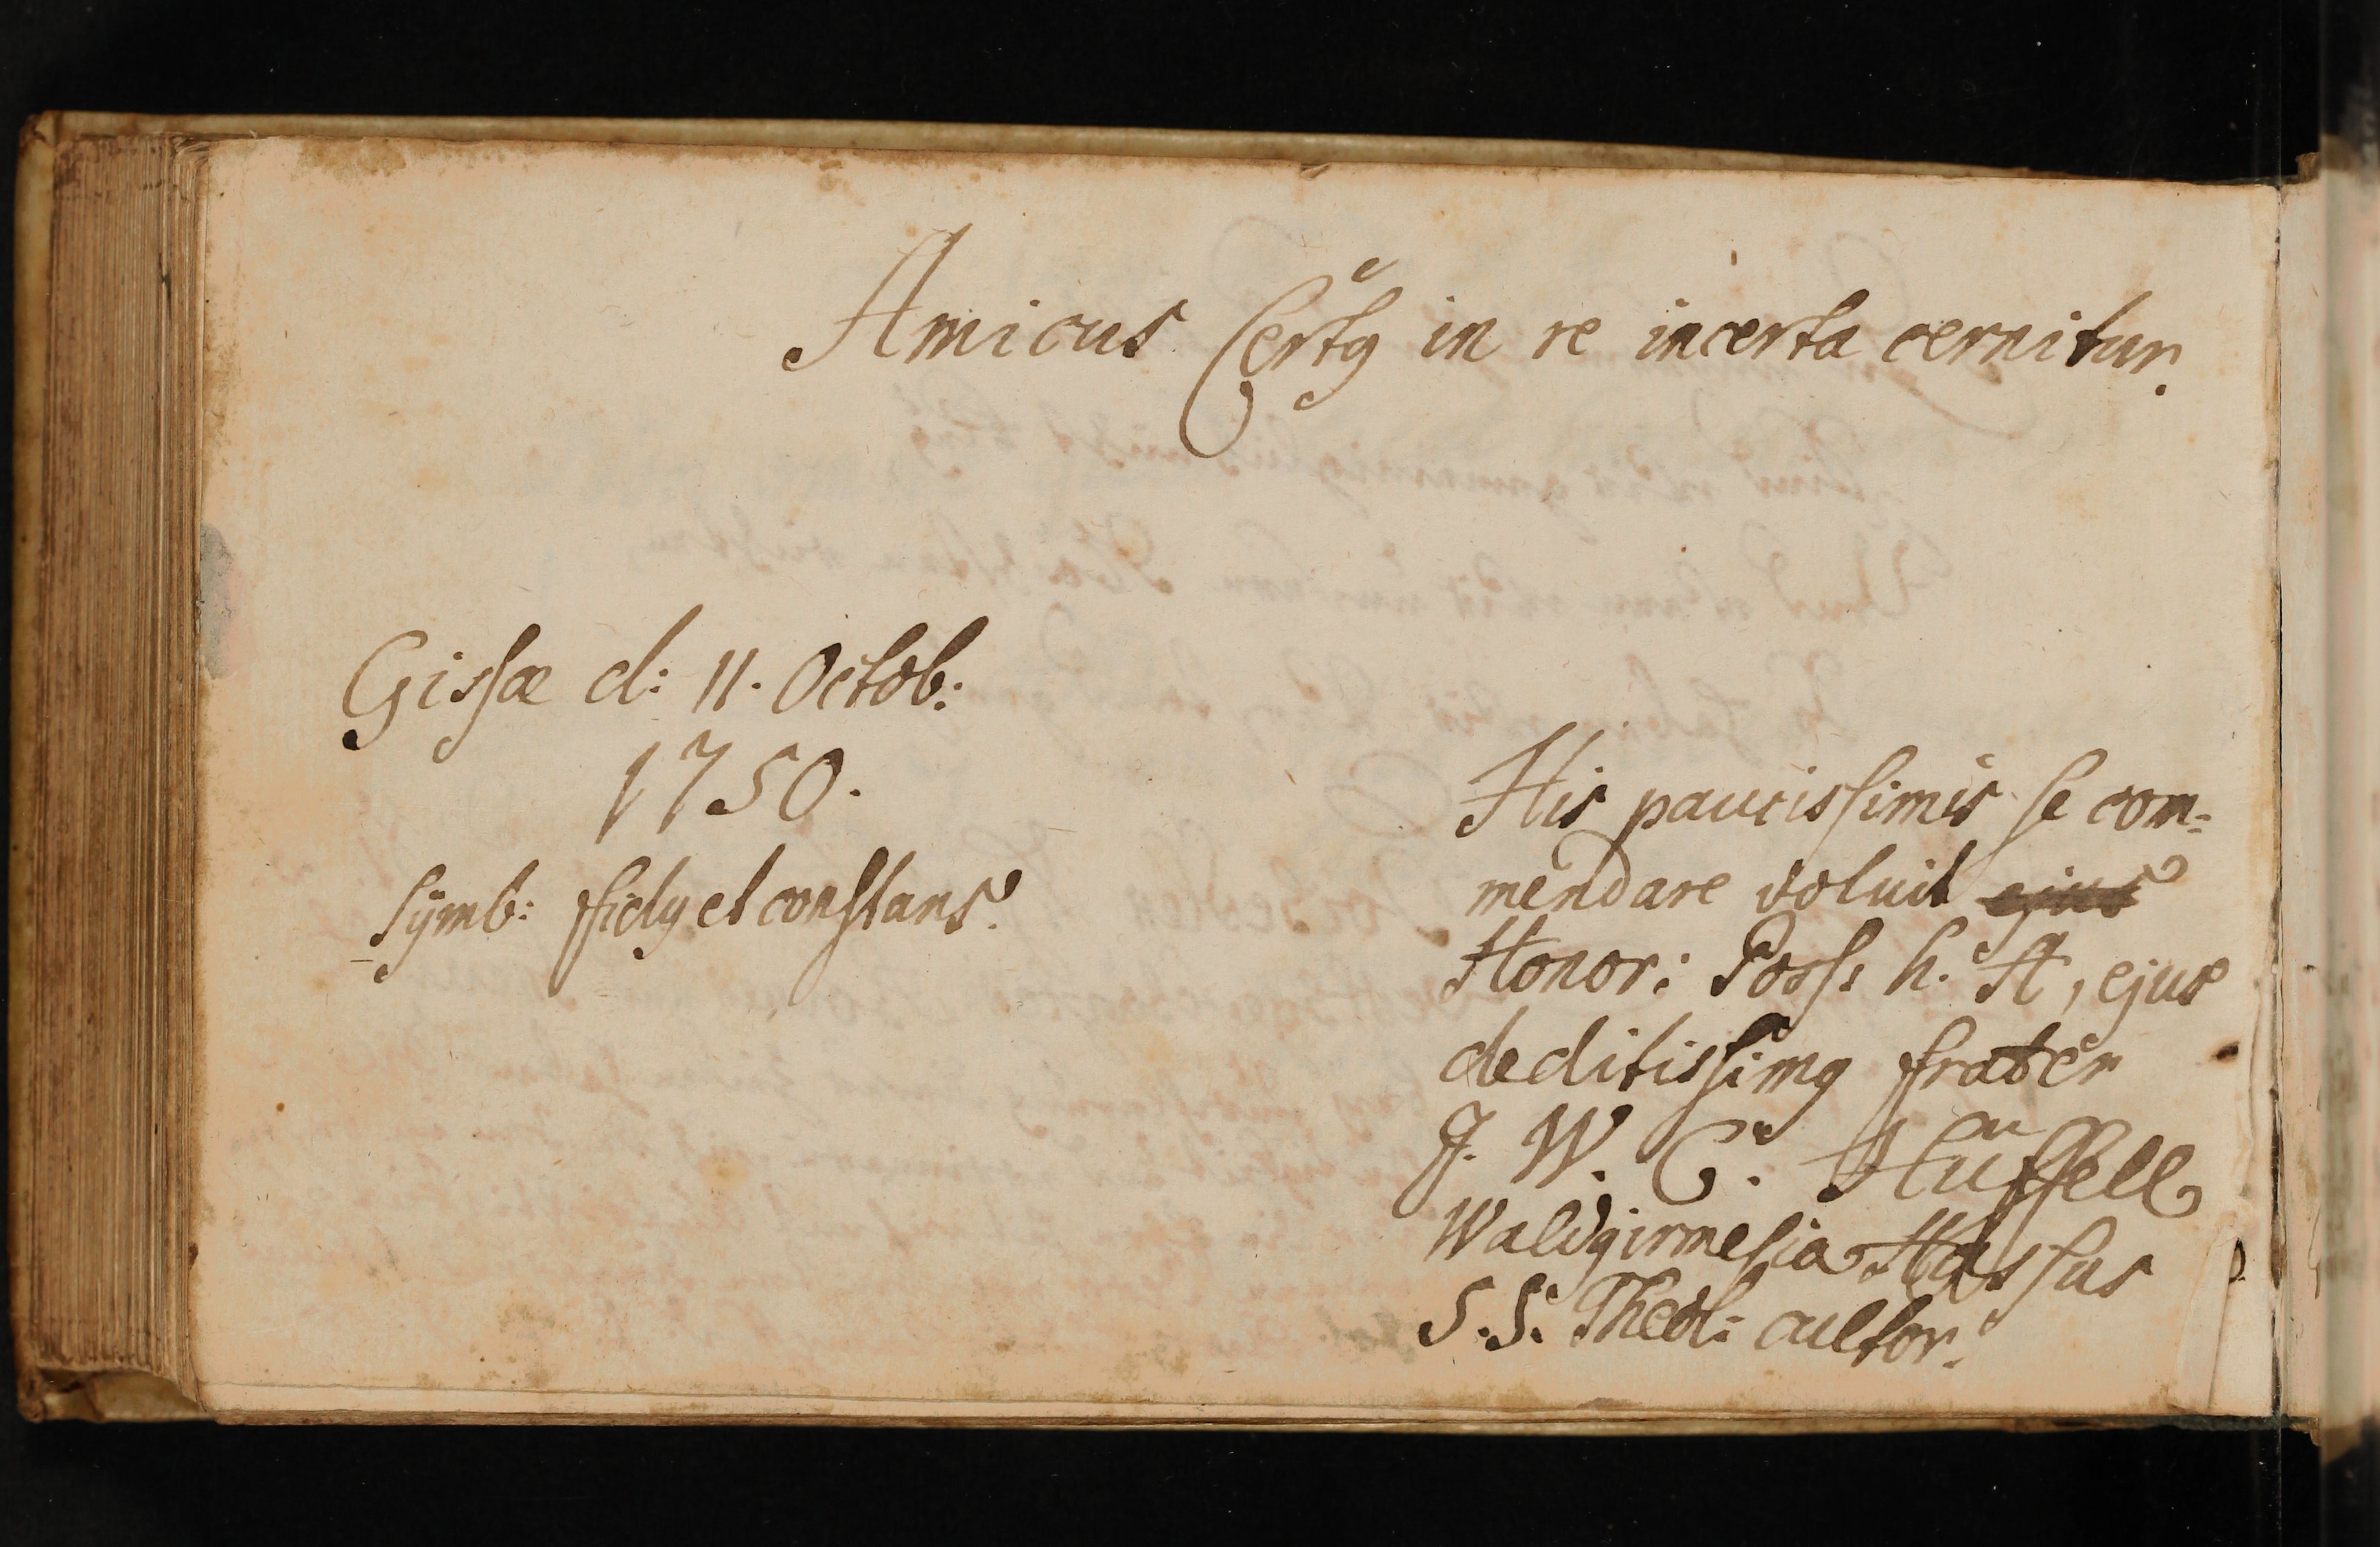 Amicus Certꝯ in re incerta cernitur.
Gissæ d: 11. Octob:
1750.
Symb: ffidꝯ et constans.
His paucissimis se com-
mendare voluit ejus
Honor: Poss: h. A, ejus
deditissimꝯ frater
J. W. C. Hüffell
Waldgirmesia Hassus
S. S. Theol: cultor.